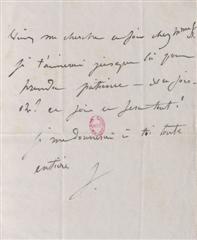 Viens me chercher ce soir chez
je t'aimerai jusque là pour
prendre patience — et ce soir
oh! ce soir ce sera tout!
je me donnerai à toi toute
entière
J.